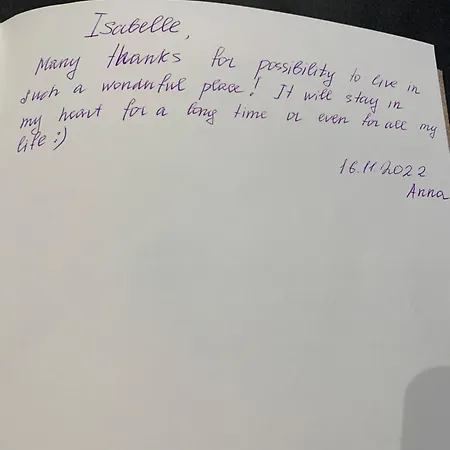 Isabelle,
Many thanks for possibility to live in
such a wonderful place! It will stay in
my heart for a long time or even for all my
life :)
16.11.2022
Anna